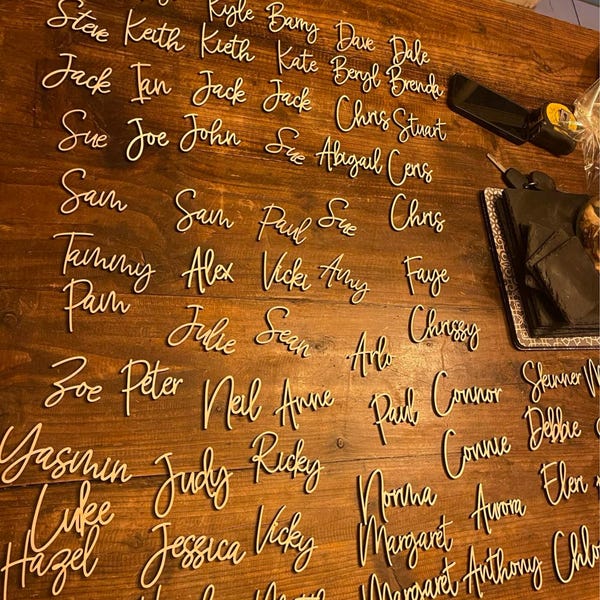 Kyle Barry
Steve Keith Kieth Kate Dave Dale
Jack Ian Jack Jack Beryl Brenda
Chris Stuart
Sue Joe John Sue Abigail Ceris
Sam Sam Paul Sue Chris
Tammy Alex Vicki Amy Faye
Pam Julie Sean Arlo Chrissy
Zoe Peter Neil Anne Paul Connor Skinner
Yasmin Judy Ricky Connie Debbie
Luke Norma Aurora Eleri
Hazel Jessica Vicky Margaret Anthony Chlo
Margaret